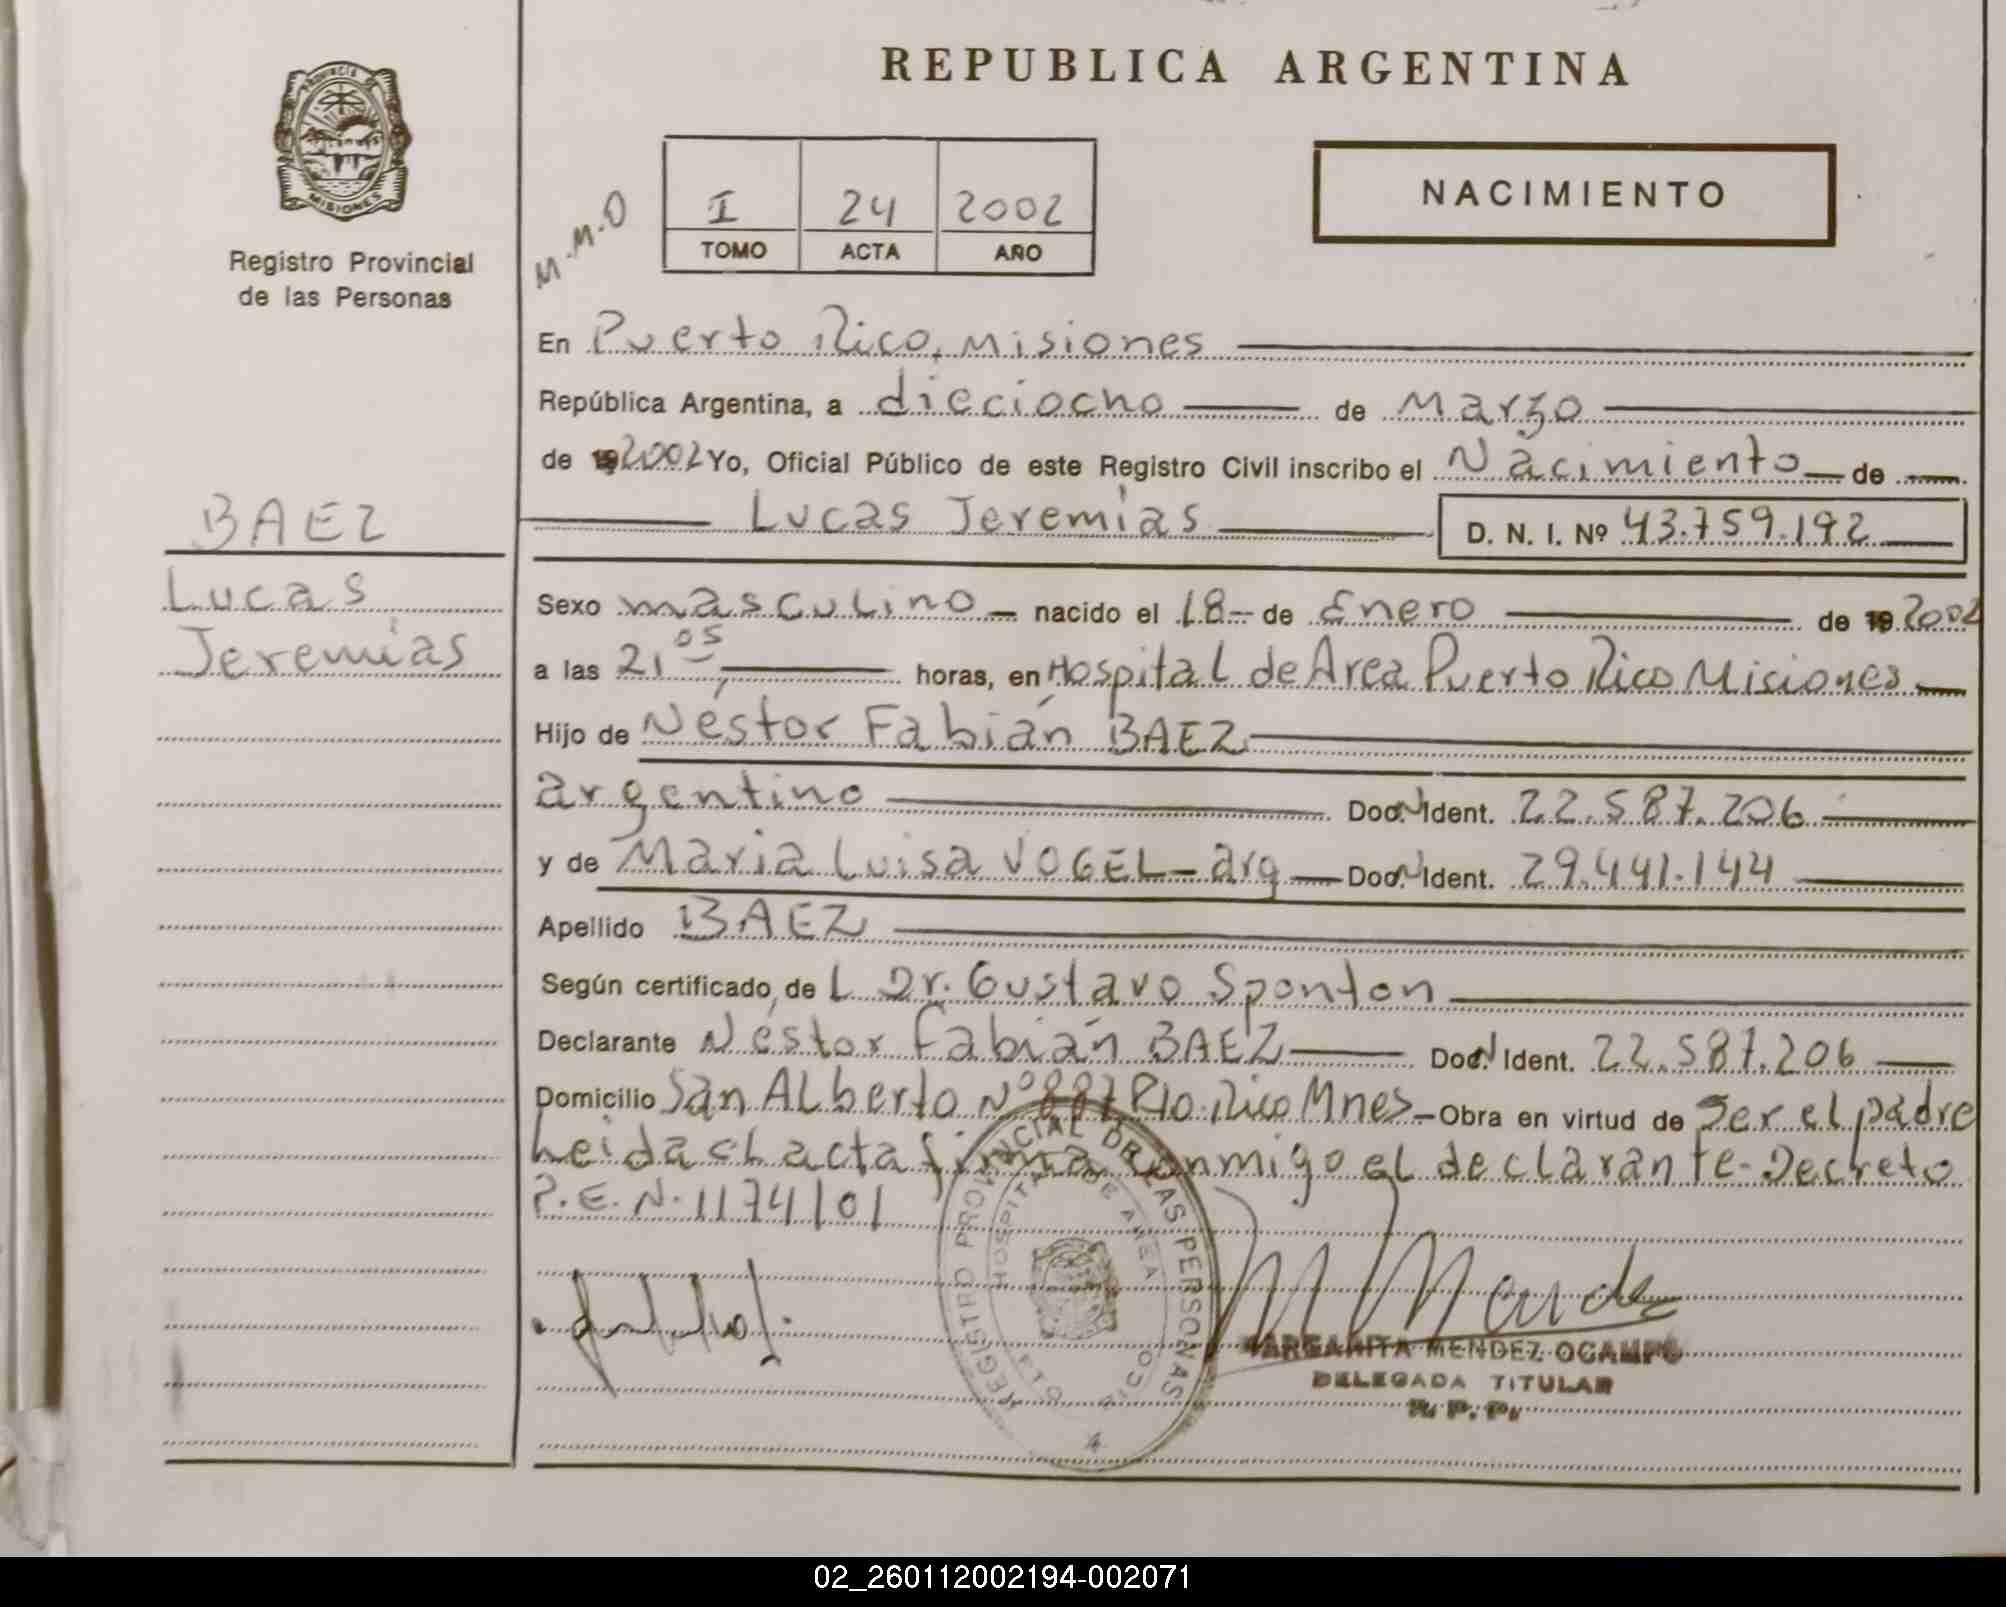 REPUBLICA ARGENTINA
PROVINCIA DE
MISIONES
Registro Provincial
de las Personas
M.M.O
I 24 2002
TOMO ACTA AÑO
NACIMIENTO
En Puerto Rico, Misiones
República Argentina, a dieciocho de Marzo
de 192002 Yo, Oficial Público de este Registro Civil inscribo el Nacimiento de
Lucas Jeremías D. N. I. Nº 43.759.192
BAEZ
Lucas
Jeremías
Sexo masculino nacido el 18 de Enero de 19 2002
a las 21 05 horas, en Hospital de Area Puerto Rico Misiones
Hijo de Néstor Fabián BAEZ
argentino Doc. N Ident. 22.587.206
y de Maria Luisa VOGEL arg Doc. N Ident. 29.441.144
Apellido BAEZ
Según certificado de L Dr. Gustavo Sponton
Declarante Néstor Fabián BAEZ Doc. N Ident. 22.587.206
Domicilio San Alberto Nº 887 Pto. Rico Mnes Obra en virtud de Ser el padre
Leida el acta firma conmigo el declarante - Decreto
P.E.N. 1174/01
REGISTRO PROVINCIAL DE LAS PERSONAS
HOSPITAL DE AREA
PTO RICO
MARGARITA MENDEZ OCAMPO
DELEGADA TITULAR
R. P. P.
02_260112002194-002071